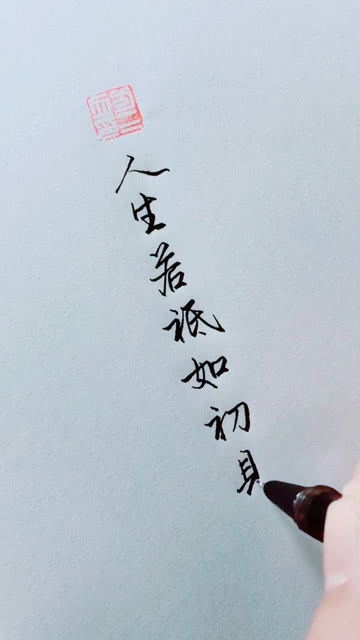 人生若祗如初見